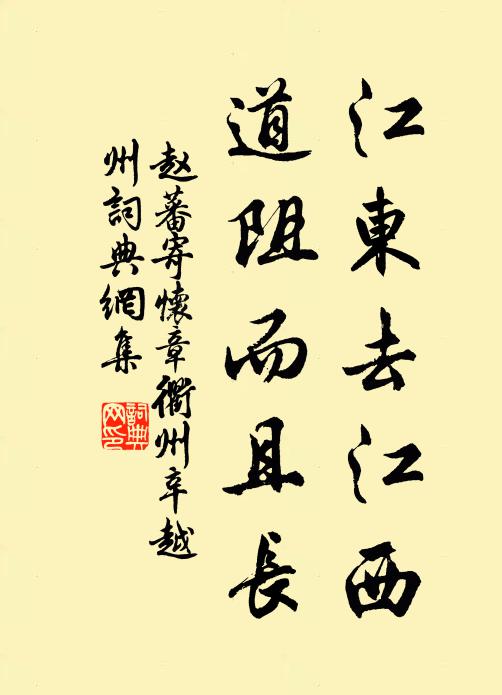 江東去江西
道阻而且長
赵蕃寄懷章衢州辛越
州詞典網集
詞典
网印